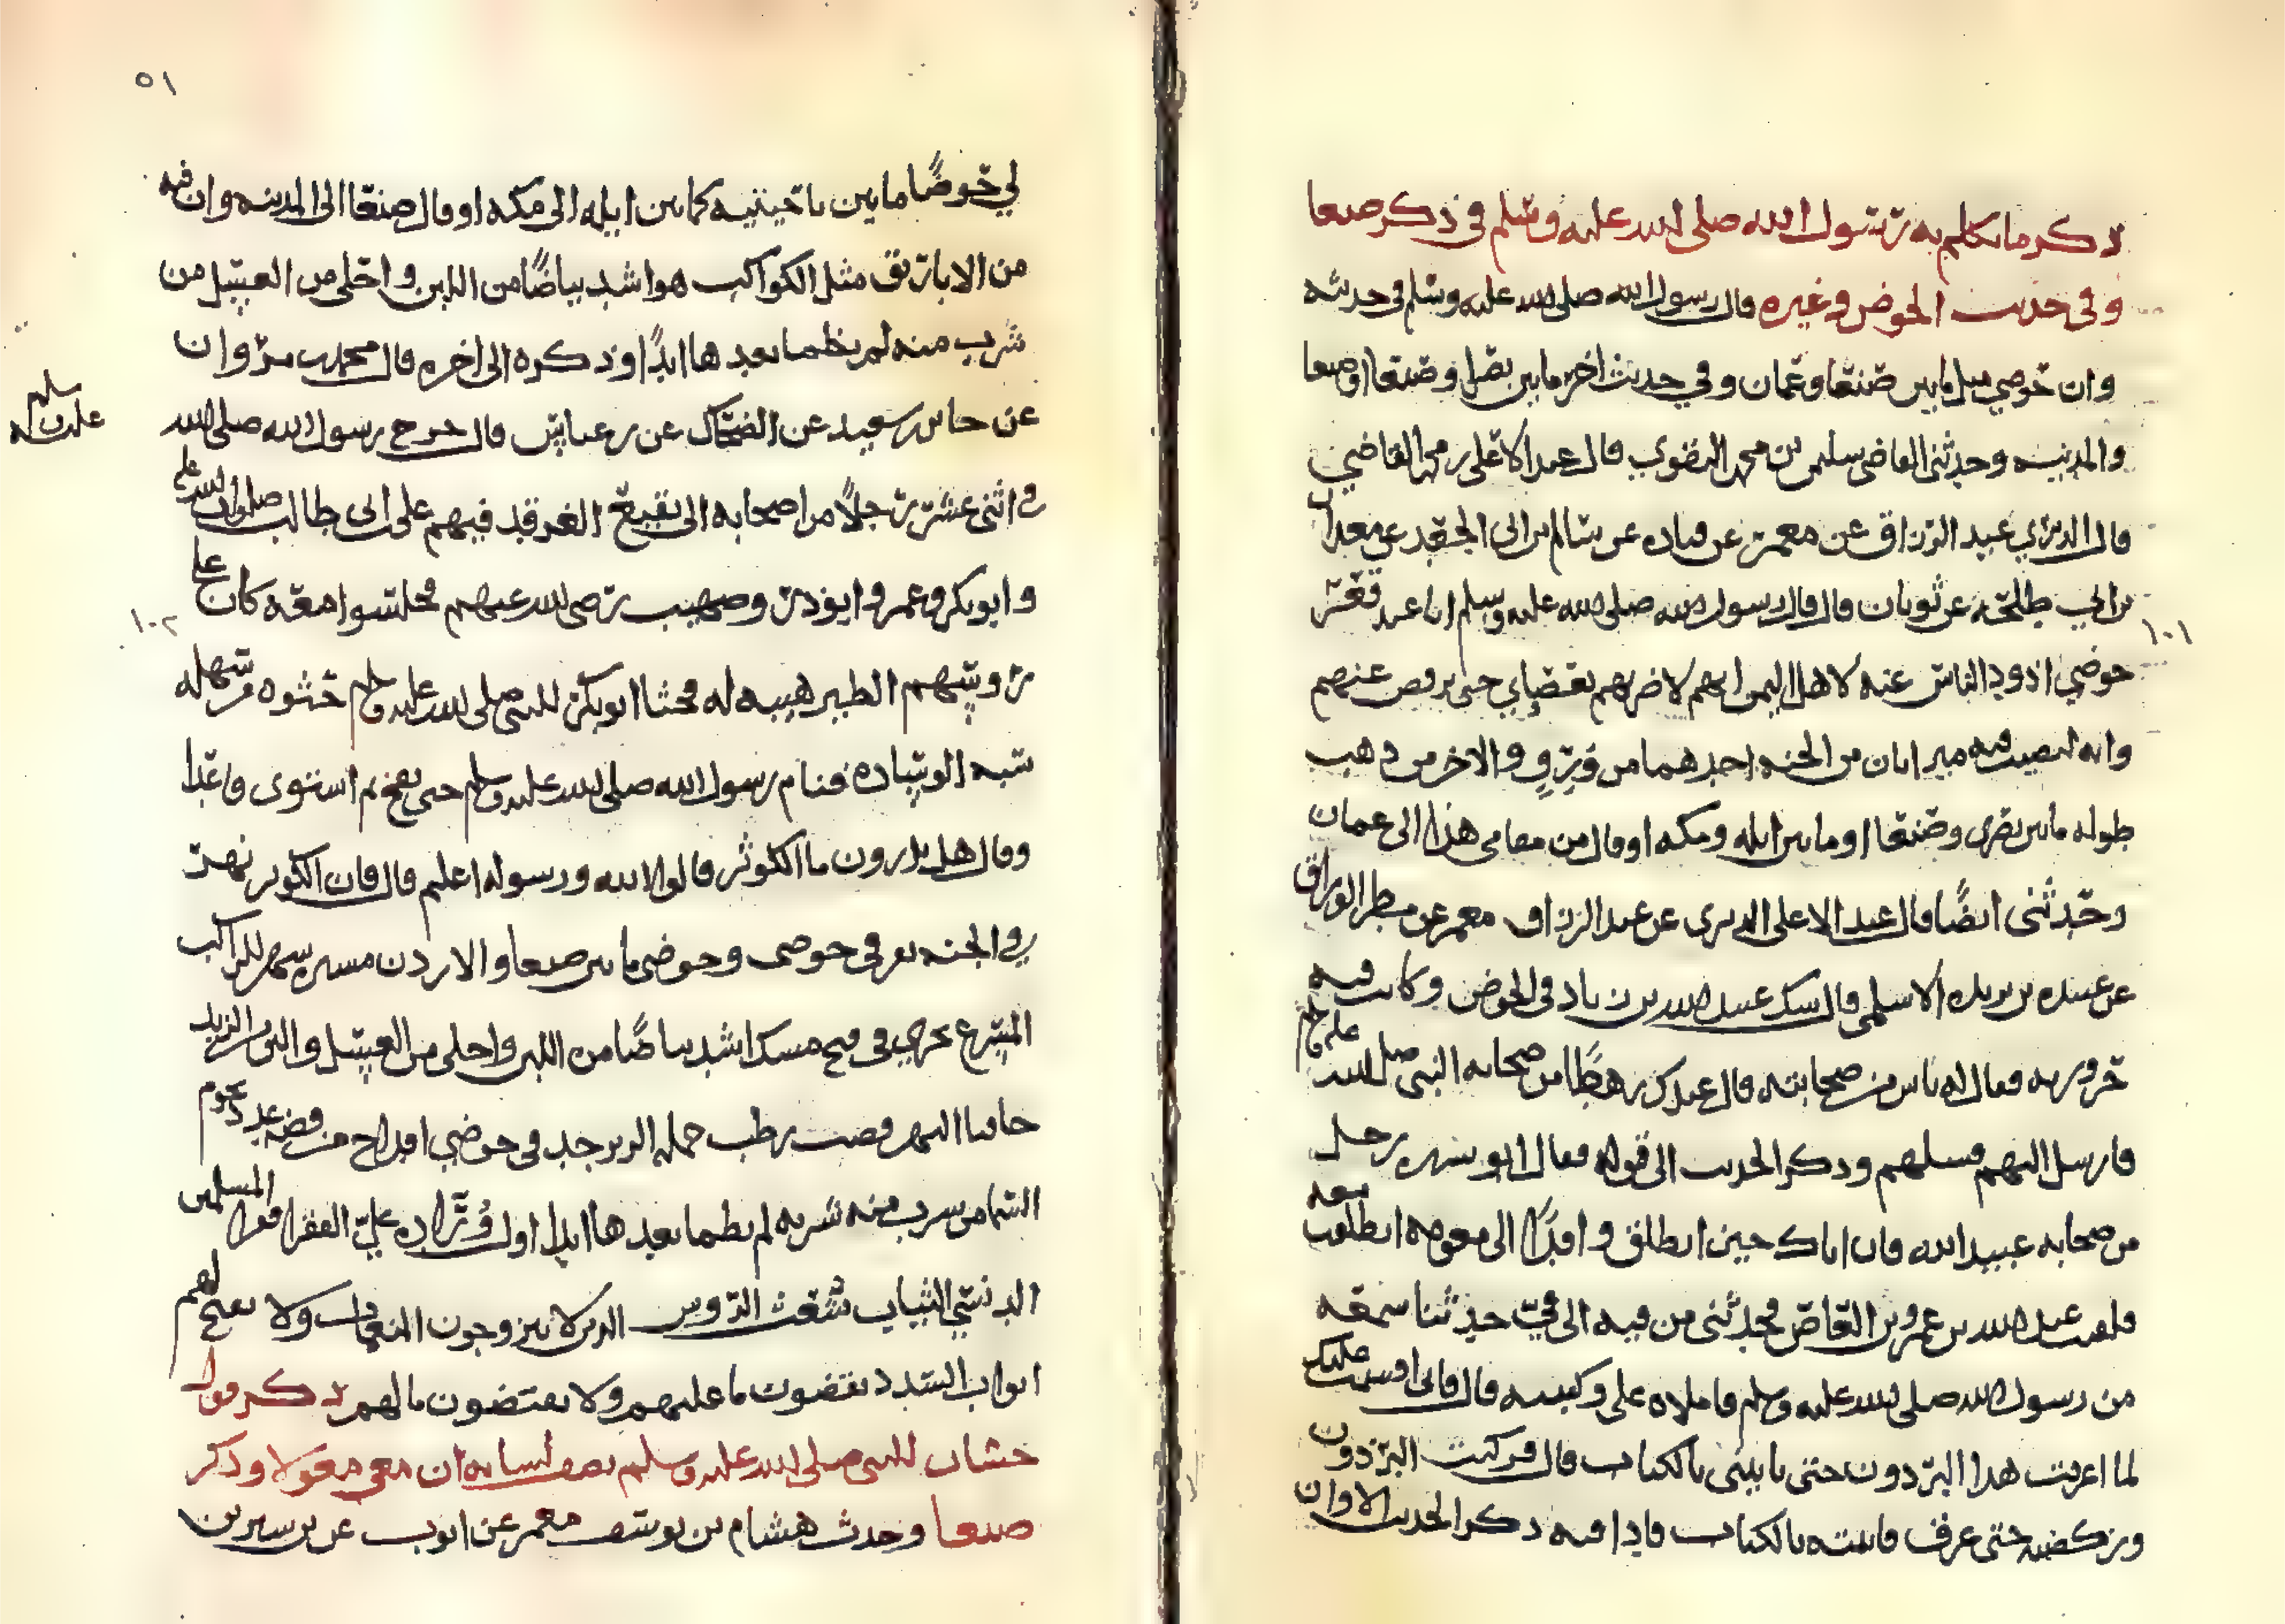 ذكر ما تكلم به رسول الله صلى الله عليه وسلم في ذكر صنعا
وفي حديث الحوض وغيره قال رسول الله صلى الله عليه وسلم في حديثه
وان حوضي مابين صنعا وعمان وفي حديث اخر مابين بصرى وصنعا او صنعا
والمدينه وحدثني القاضي سليمن بن محمد النقوي قال عبد الاعلى بن محمد القاضي
قال الدبري عبد الرزاق عن معمر عن قتاده عن سالم بن ابي الجعد عن معدان
بن ابي طلحه عن ثوبان قال قال رسول الله صلى الله عليه وسلم انا عند عقر
حوضي اذود الناس عنه لاهل اليمن اني لاضربهم بعصاي حتى يرفض عنهم
وانه ليصب فيه ميزابان من الجنه احدهما من ورق والاخر من ذهب
طوله مابين بصرى وصنعا او مابين ايله ومكه او قال من مقامي هذا الى عمان
وحدثني ايضًا قال عبد الاعلى الدبري عن عبد الرزاق معمر عن مطر الوراق
عن عبد الله بن بريده الاسلمي قال شك عبيد الله بن زياد في الحوض وكانت فيه
حروريه فقال له ناس من صحابته قال عندك رهطًا من صحابه النبي صلى الله عليه وسلم
فارسل اليهم فسلهم وذكر الحديث الى قوله فقال ابو سبره رجل
من صحابه عبيد الله فان اباك حين انطلق وافدًا الى معويه انطلقت معه
فلقيت عبد الله بن عمرو بن العاص فحدثني من فيه الى في حديثا سمعه
من رسول الله صلى الله عليه وسلم فاملاه علي وكتبته قال فاني اقسمت عليك
لما اعرقت هذا البرذون حتى تاتيني بالكتاب قال فركبت البرذون
وركضته حتى عرق فاتيته بالكتاب فاذا فيه ذكر الحديث الا وان
١٠١
٥١
لي حوضًا ما بين ناحيتيه كما بين ايله الى مكه او قال صنعا الى المدينه وان فيه
من الاباريق مثل الكواكب هو اشد بياضًا من اللبن واحلى من العسل من
شرب منه لم يظما بعدها ابدًا وذكره الى اخره قال محمد بن مروان
عن حابس بن سعيد عن الضحاك عن بن عباس قال خرج رسول الله صلى الله
في اثنى عشر رجلًا من اصحابه الى بقيع الغرقد فيهم علي بن ابي طالب صلوات الله عليه
وابو بكر وعمر وابو ذر وصهيب رضي الله عنهم فجلسوا معه كان على
روسهم الطير هيبه له فحثا ابو بكر للنبي صلى الله عليه وسلم حثوه من سهله
شبه الوساده فنام رسول الله صلى الله عليه وسلم حتى نفخ ثم استوى قاعدا
وقال هل تدرون ما الكوثر قالوا الله ورسوله اعلم قال فان الكوثر نهر
في الجنه يعرف في حوضي وحوضي ما بين صنعا والاردن مسيره شهر للراكب
المسرع يجري في فيح مسك اشد بياضًا من اللبن واحلى من العسل والين من الزبد
حافتا النهر قصب رطب حمله الزبرجد في حوضي اقداح من فضه عدد نجوم
السما من شرب منه شربه لم يظما بعدها ابدا اول وراده علي الفقرا فقرا المسلمين
الدنسي الثياب شعث الروس الذين لا يتزوجون المنعمات ولا تفتح لهم
ابواب السدد يقضون ما عليهم ولا يقتضون ما لهم ذكر قول
حسان للنبي صلى الله عليه وسلم يصف لسانه ان معي مقولا وذكر
صنعا وحدث هشام بن يوسف معمر عن ايوب عن بن سيرين
١٠٢